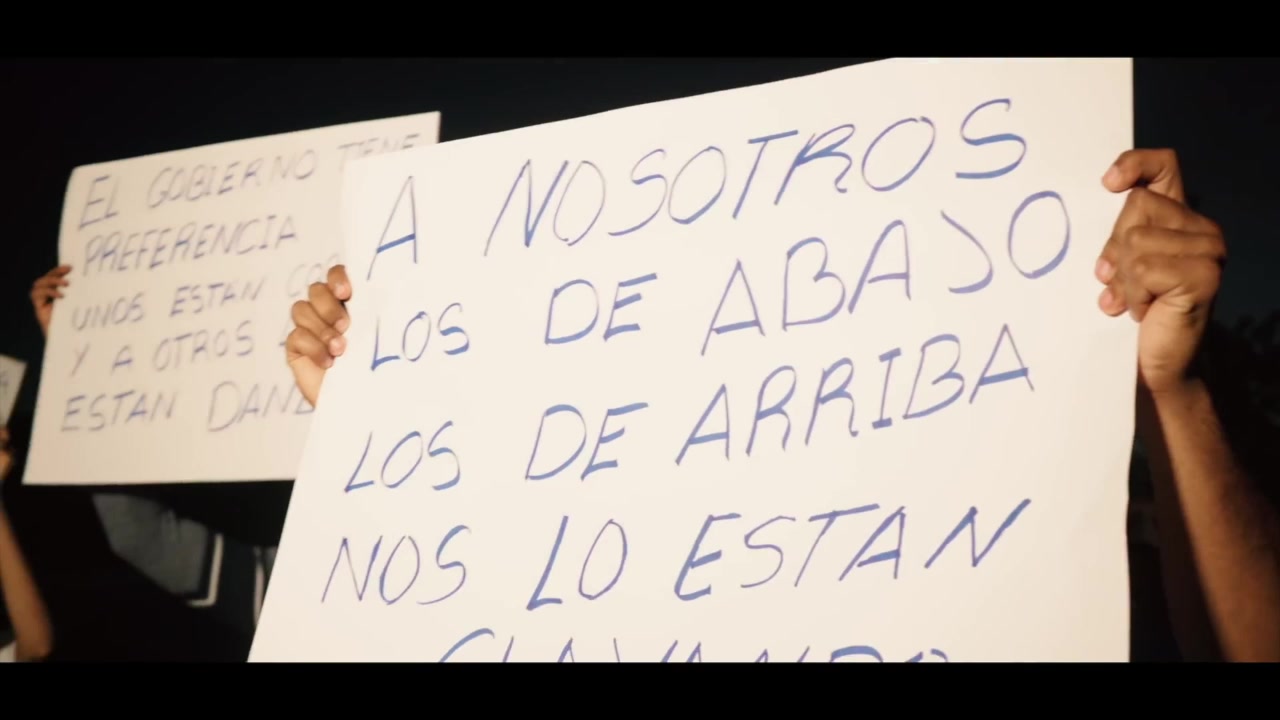 EL GOBIERNO TIENE
PREFERENCIA
UNOS ESTAN
Y A OTROS
ESTAN
A NOSOTROS
LOS DE ABAJO
LOS DE ARRIBA
NOS LO ESTAN
CLAVANDO